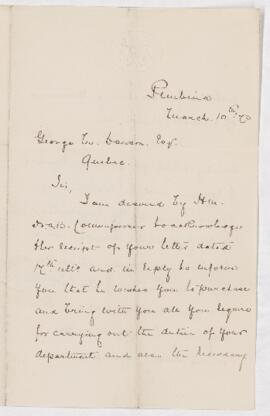 Pembina
March 10th/73
George M. Dawson, Esq.
Quebec.
Sir,
I am desired by Her
Commissioner to acknowledge
the receipt of your letter dated
17th ulto and in reply to inform
you that he wishes you to purchase
and bring with you all you require
for carrying out the duties of your
department and also the necessary